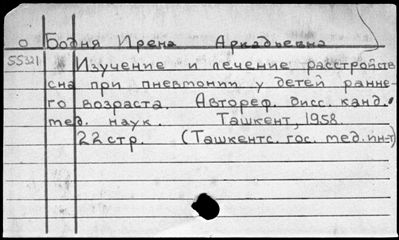 О Бодня Ирена Аркадьевна
55321 Изучение и лечение расстройств
сна при пневмонии у детей ранне-
го возраста. Автореф. дисс. канд.
мед. наук. Ташкент, 1958.
22 стр. (Ташкентс. гос. мед. ин-т)